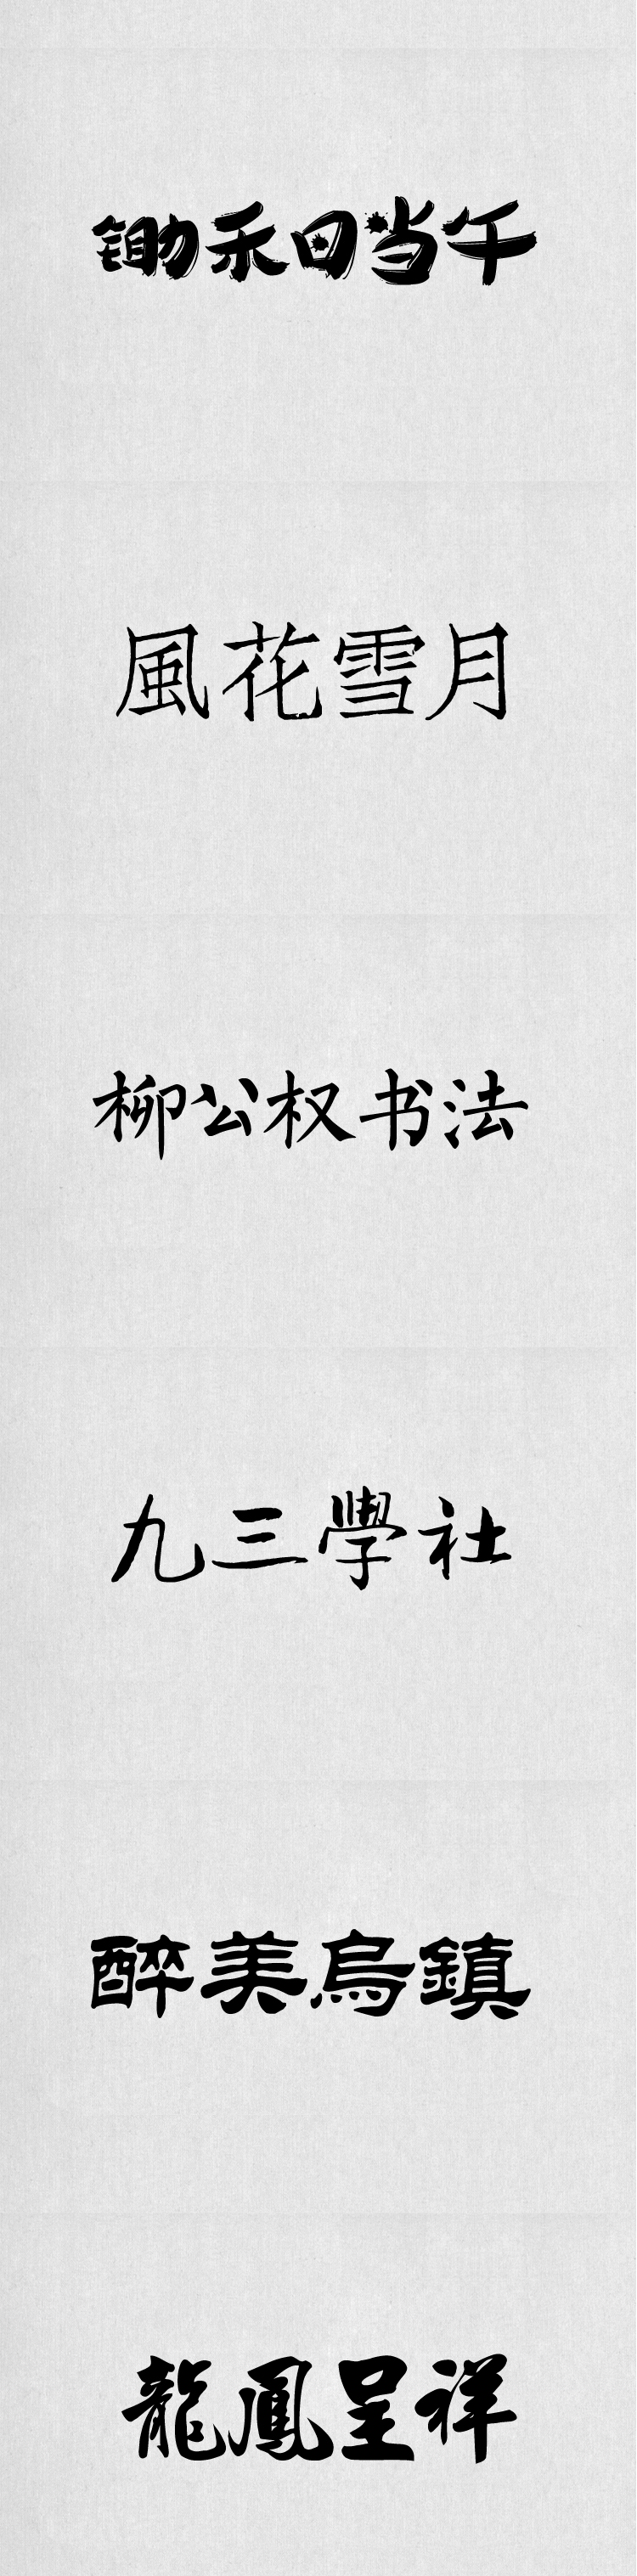 锄禾日当午
風花雪月
柳公权书法
九三學社
醉美烏鎮
龍鳳呈祥